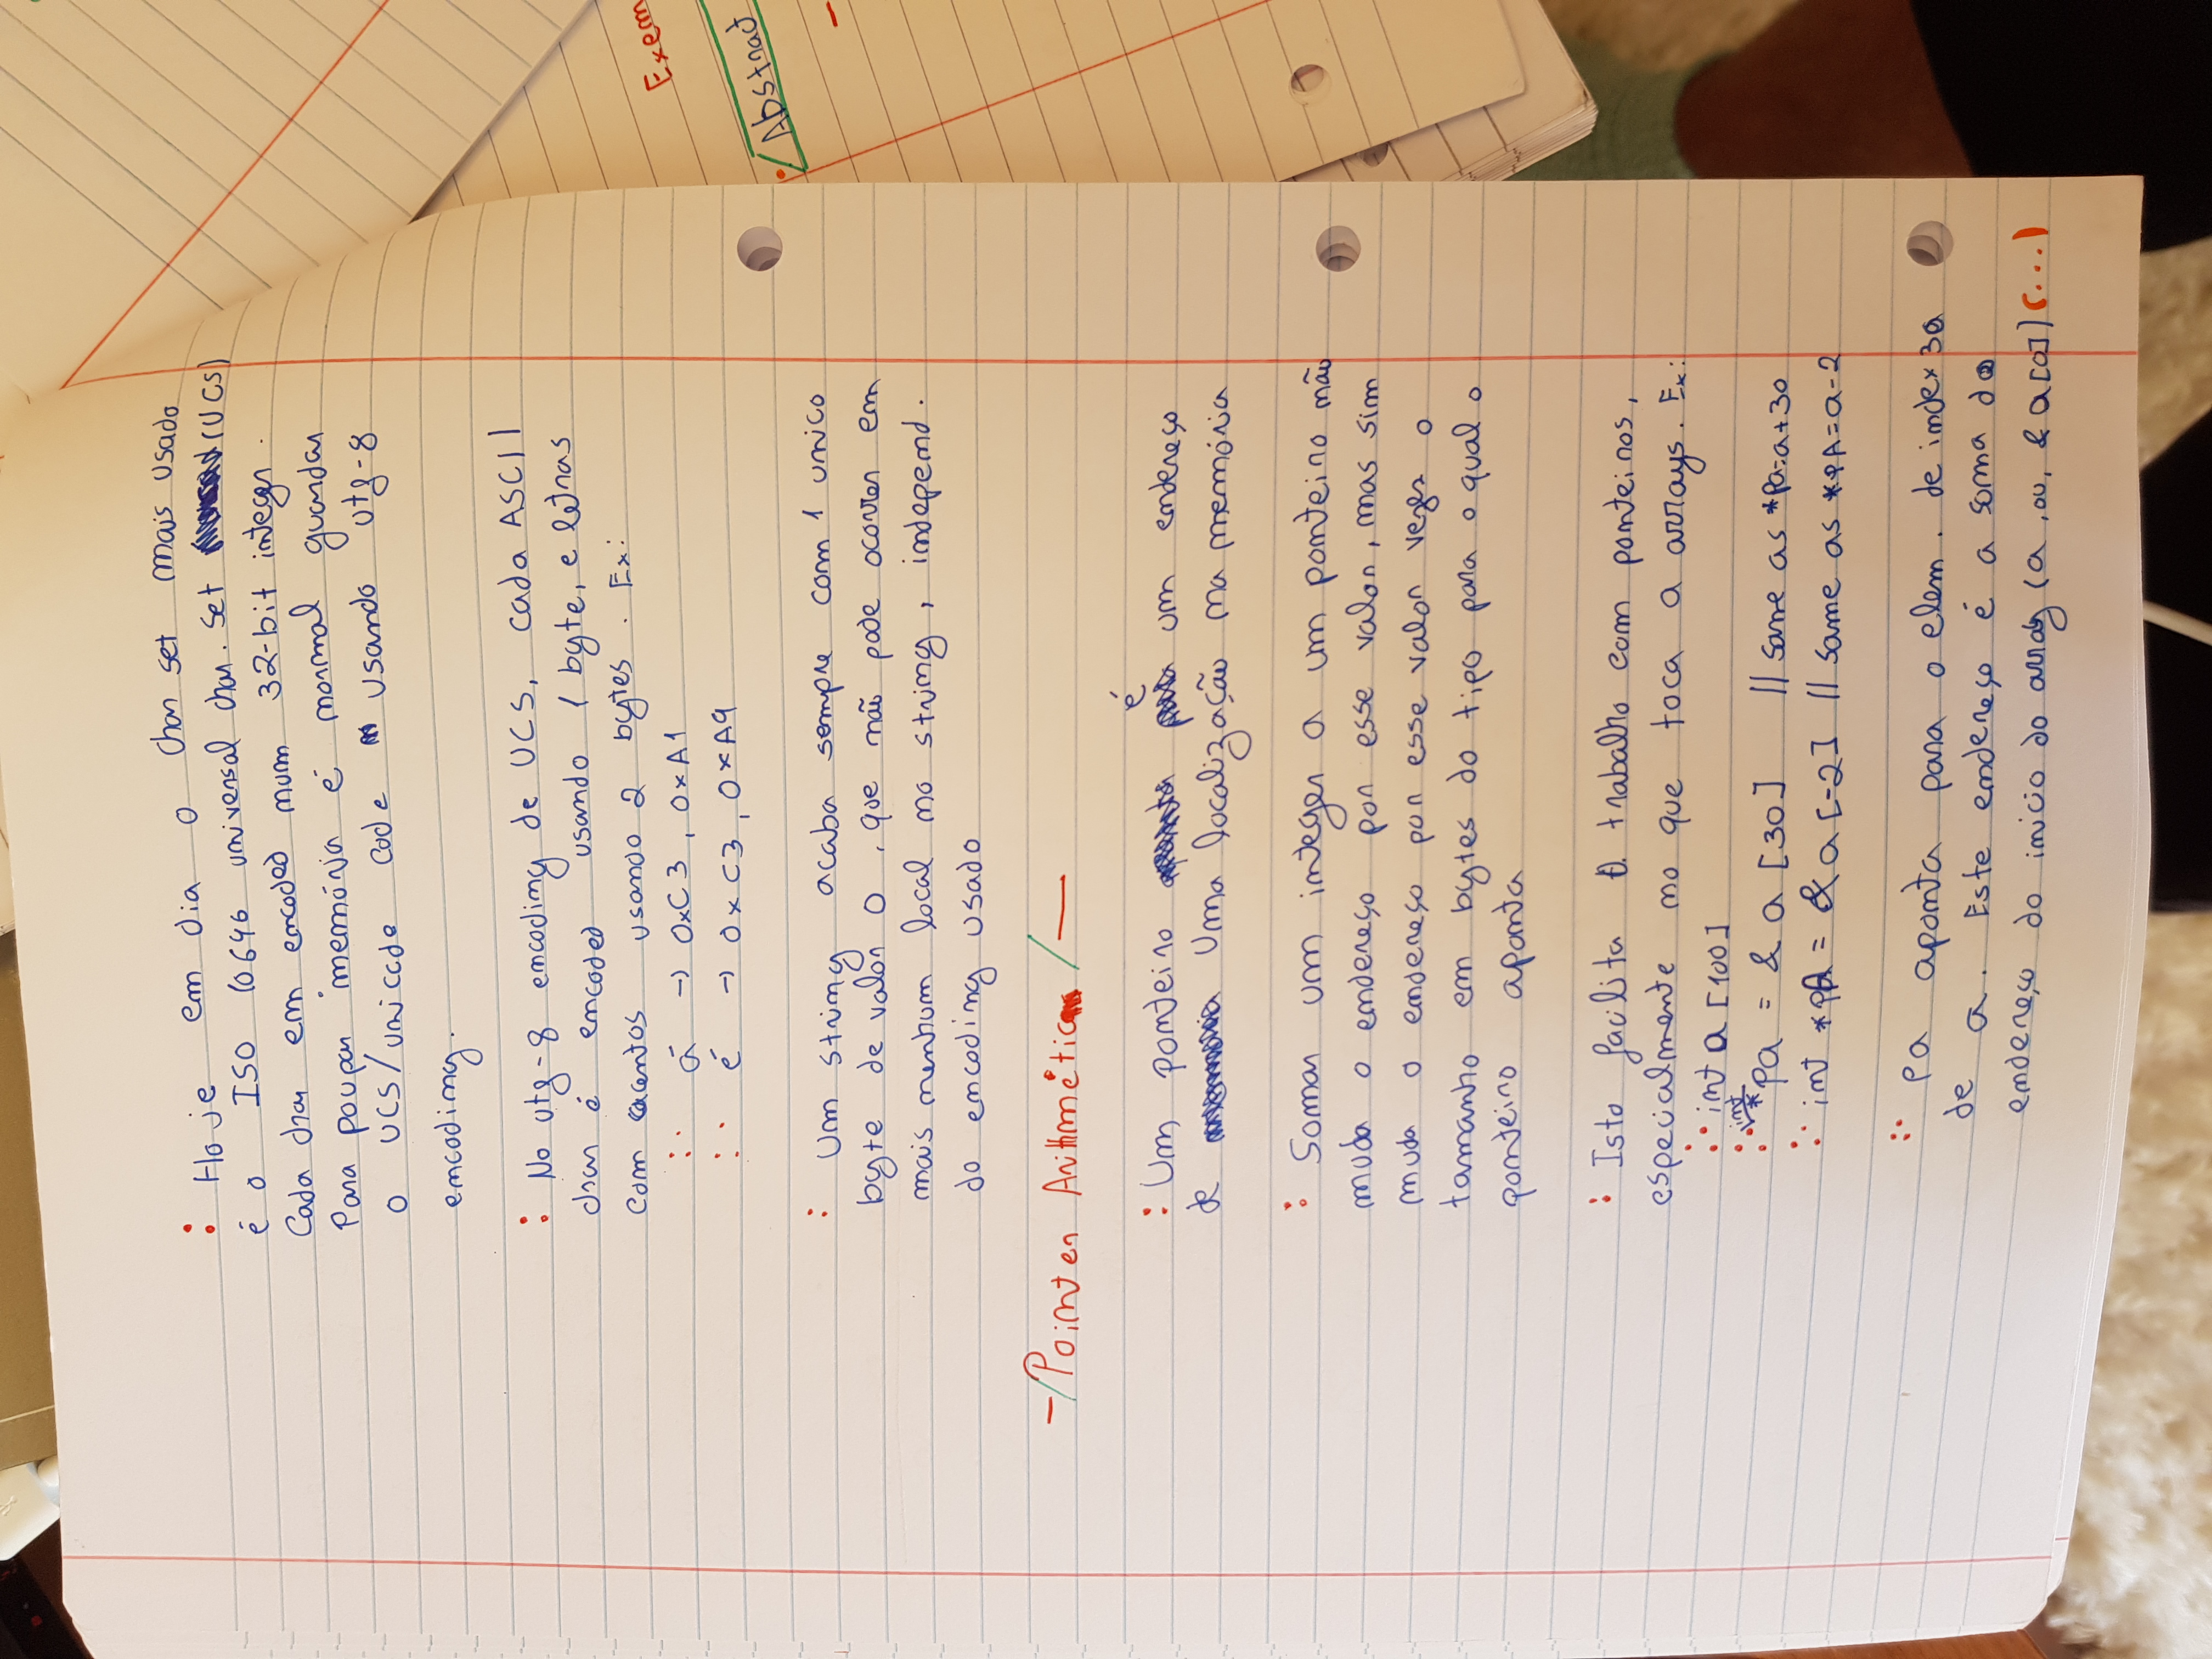 : Hoje em dia o char set mais usado
é o ISO 10646 universal char. set (UCS)
Cada char em encoded num 32-bit integer.
Para poupar memória é normal guardar
o UCS/unicode code usando utf-8
encoding.
: No utf-8 encoding de UCS, cada ASCII
char é encoded usando 1 byte, e letras
com acentos usando 2 bytes. Ex:
:· á → 0xC3, 0xA1
:· é → 0xC3, 0xA9
: Um string acaba sempre com 1 unico
byte de valor 0, que não pode ocorrer em
mais nenhum local no string, independ.
do encoding usado
-/Pointer Arithmétic/—
: Um ponteiro é um endereço
de uma localização na memória
: Somar um integer a um ponteiro não
muda o endereço por esse valor, mas sim
muda o endereço por esse valor vezes o
tamanho em bytes do tipo para o qual o
ponteiro aponta
: Isto facilita o trabalho com ponteiros,
especialmente no que toca a arrays. Ex:
:· int a [100]
:· int *pa = & a [30] // same as *pa=a+30
:· int *pA = & a [-2] // same as *pA=a-2
:· pa aponta para o elem. de index 30
de a. Este endereço é a soma do
endereço do inicio do array (a ,ou, & a[0]) (...)
Exem
: /Abstract
-